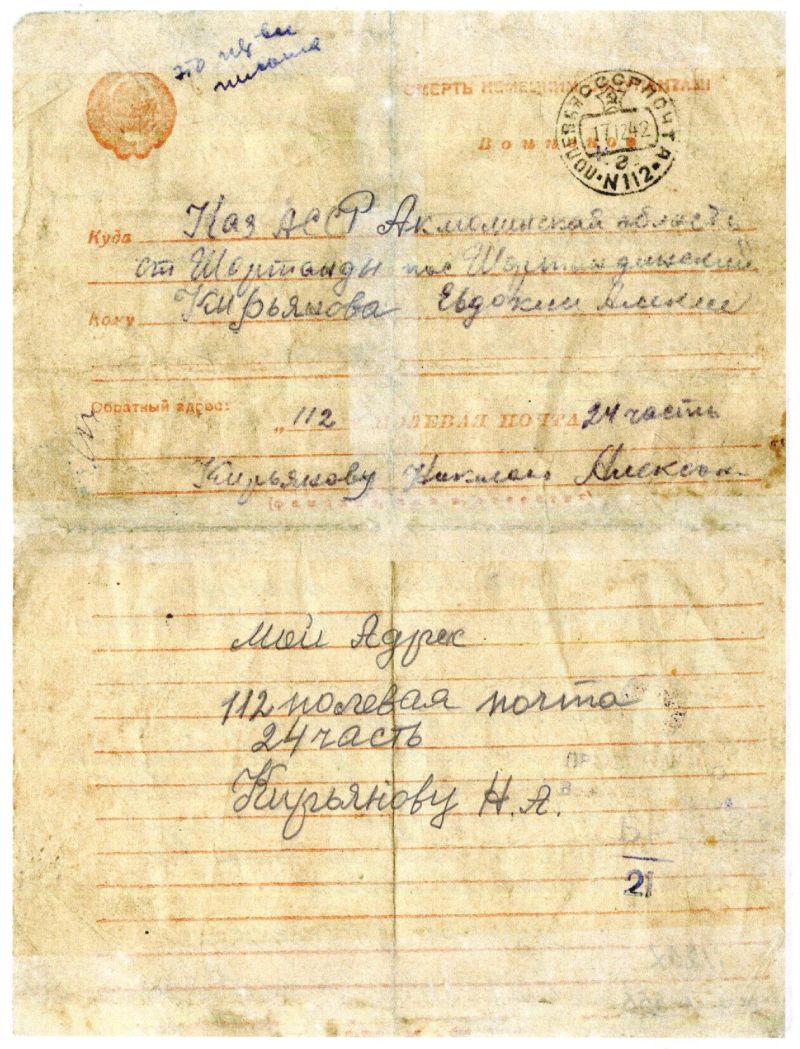 это
письма
СМЕРТЬ НЕМЕЦКИМ ОККУПАНТАМ!
Воинское
ПОЛЕВАЯ СССР ПОЧТА
17 12 42
N112
Куда Каз АССР Акмолинская область
ст Шортанды пос Шортандинский
Кому Кирьянова Евдокии
Обратный адрес:
„112 ПОЛЕВАЯ ПОЧТА 24 часть
Кирьянову Николаю Алексан.
Мой Адрес
112 полевая почта
24 часть
Кирьянову Н. А.
21